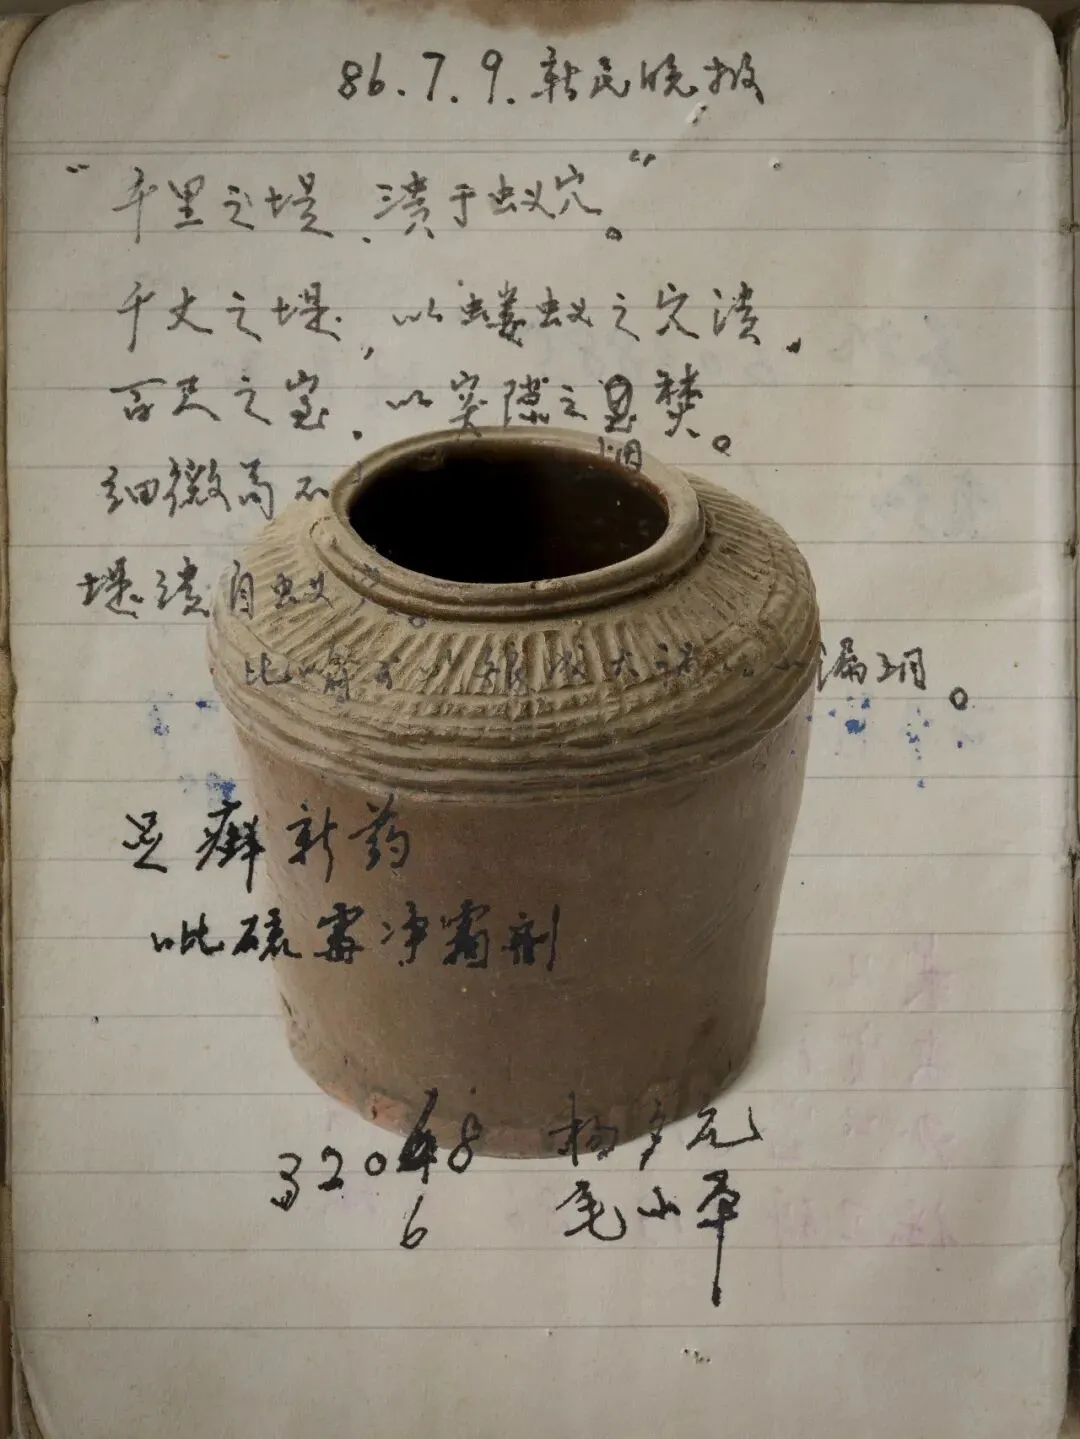 86.7.9.新民晚报
“千里之堤、溃于蚁穴。”
千丈之堤，以蝼蚁之穴溃，
百尺之室，以突隙之
烟
焚。
细微而不
堤溃自蚁
漏洞。
足癣新药
吡硫霉净霜剂
3208
6
杨多元
毛小平